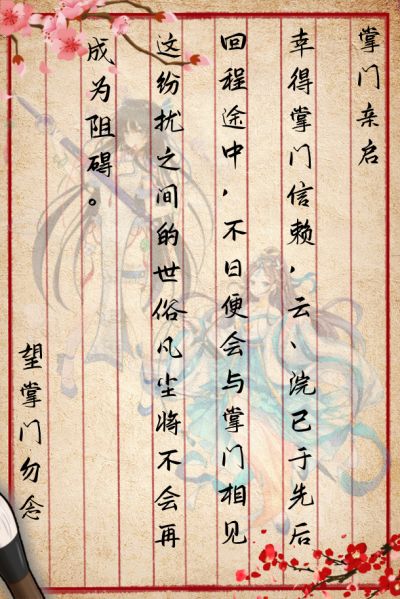 掌门亲启
幸得掌门信赖，云、浣已于先后
回程途中，不日便会与掌门相见
这纷扰之间的世俗凡尘将不会再
成为阻碍。
望掌门勿念